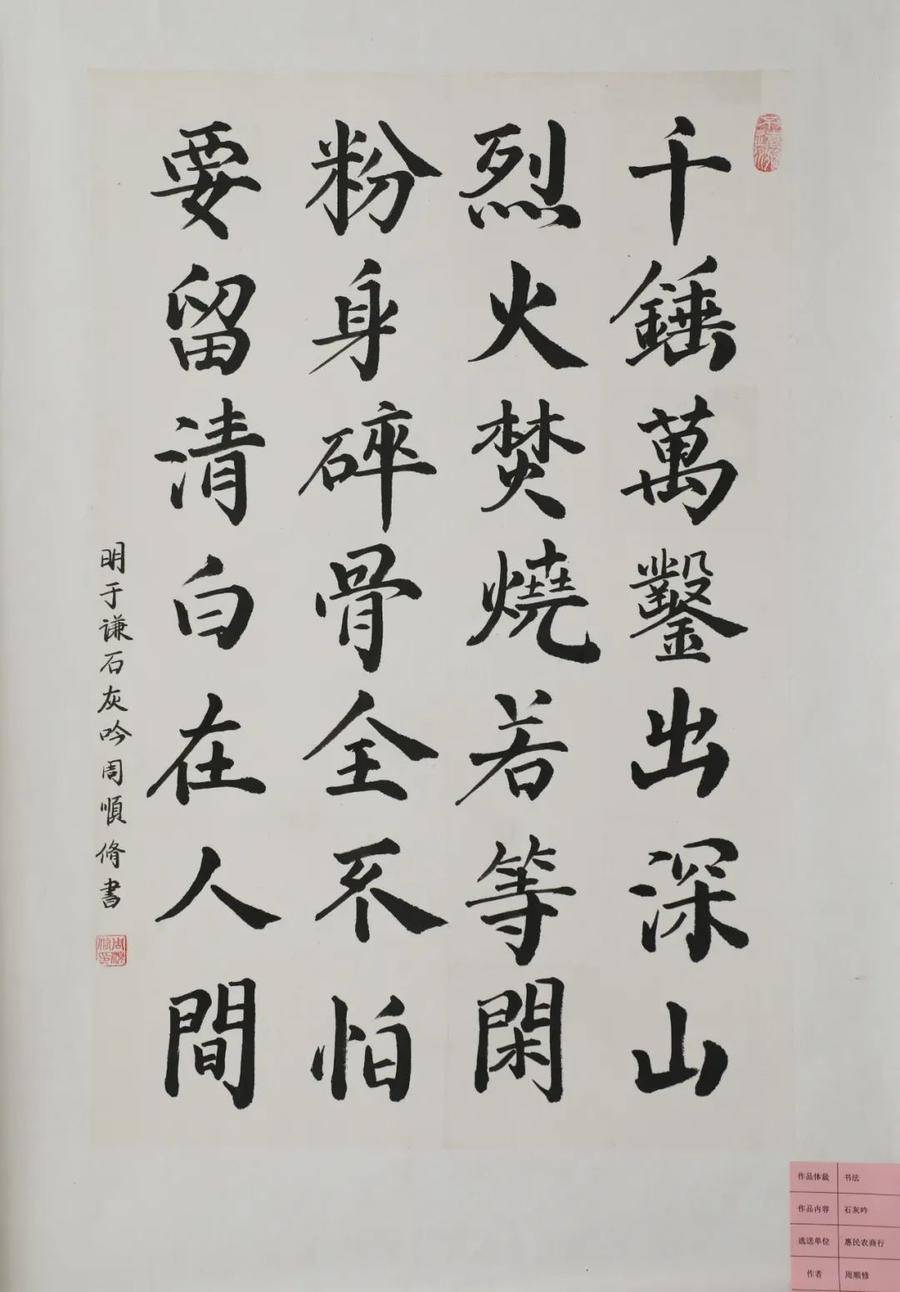 千錘萬鑿出深山
烈火焚燒若等閑
粉身碎骨全不怕
要留清白在人間
明于谦石灰吟周順脩書
作品体裁 书法
作品内容 石灰吟
选送单位 惠民农商行
作者 周顺修